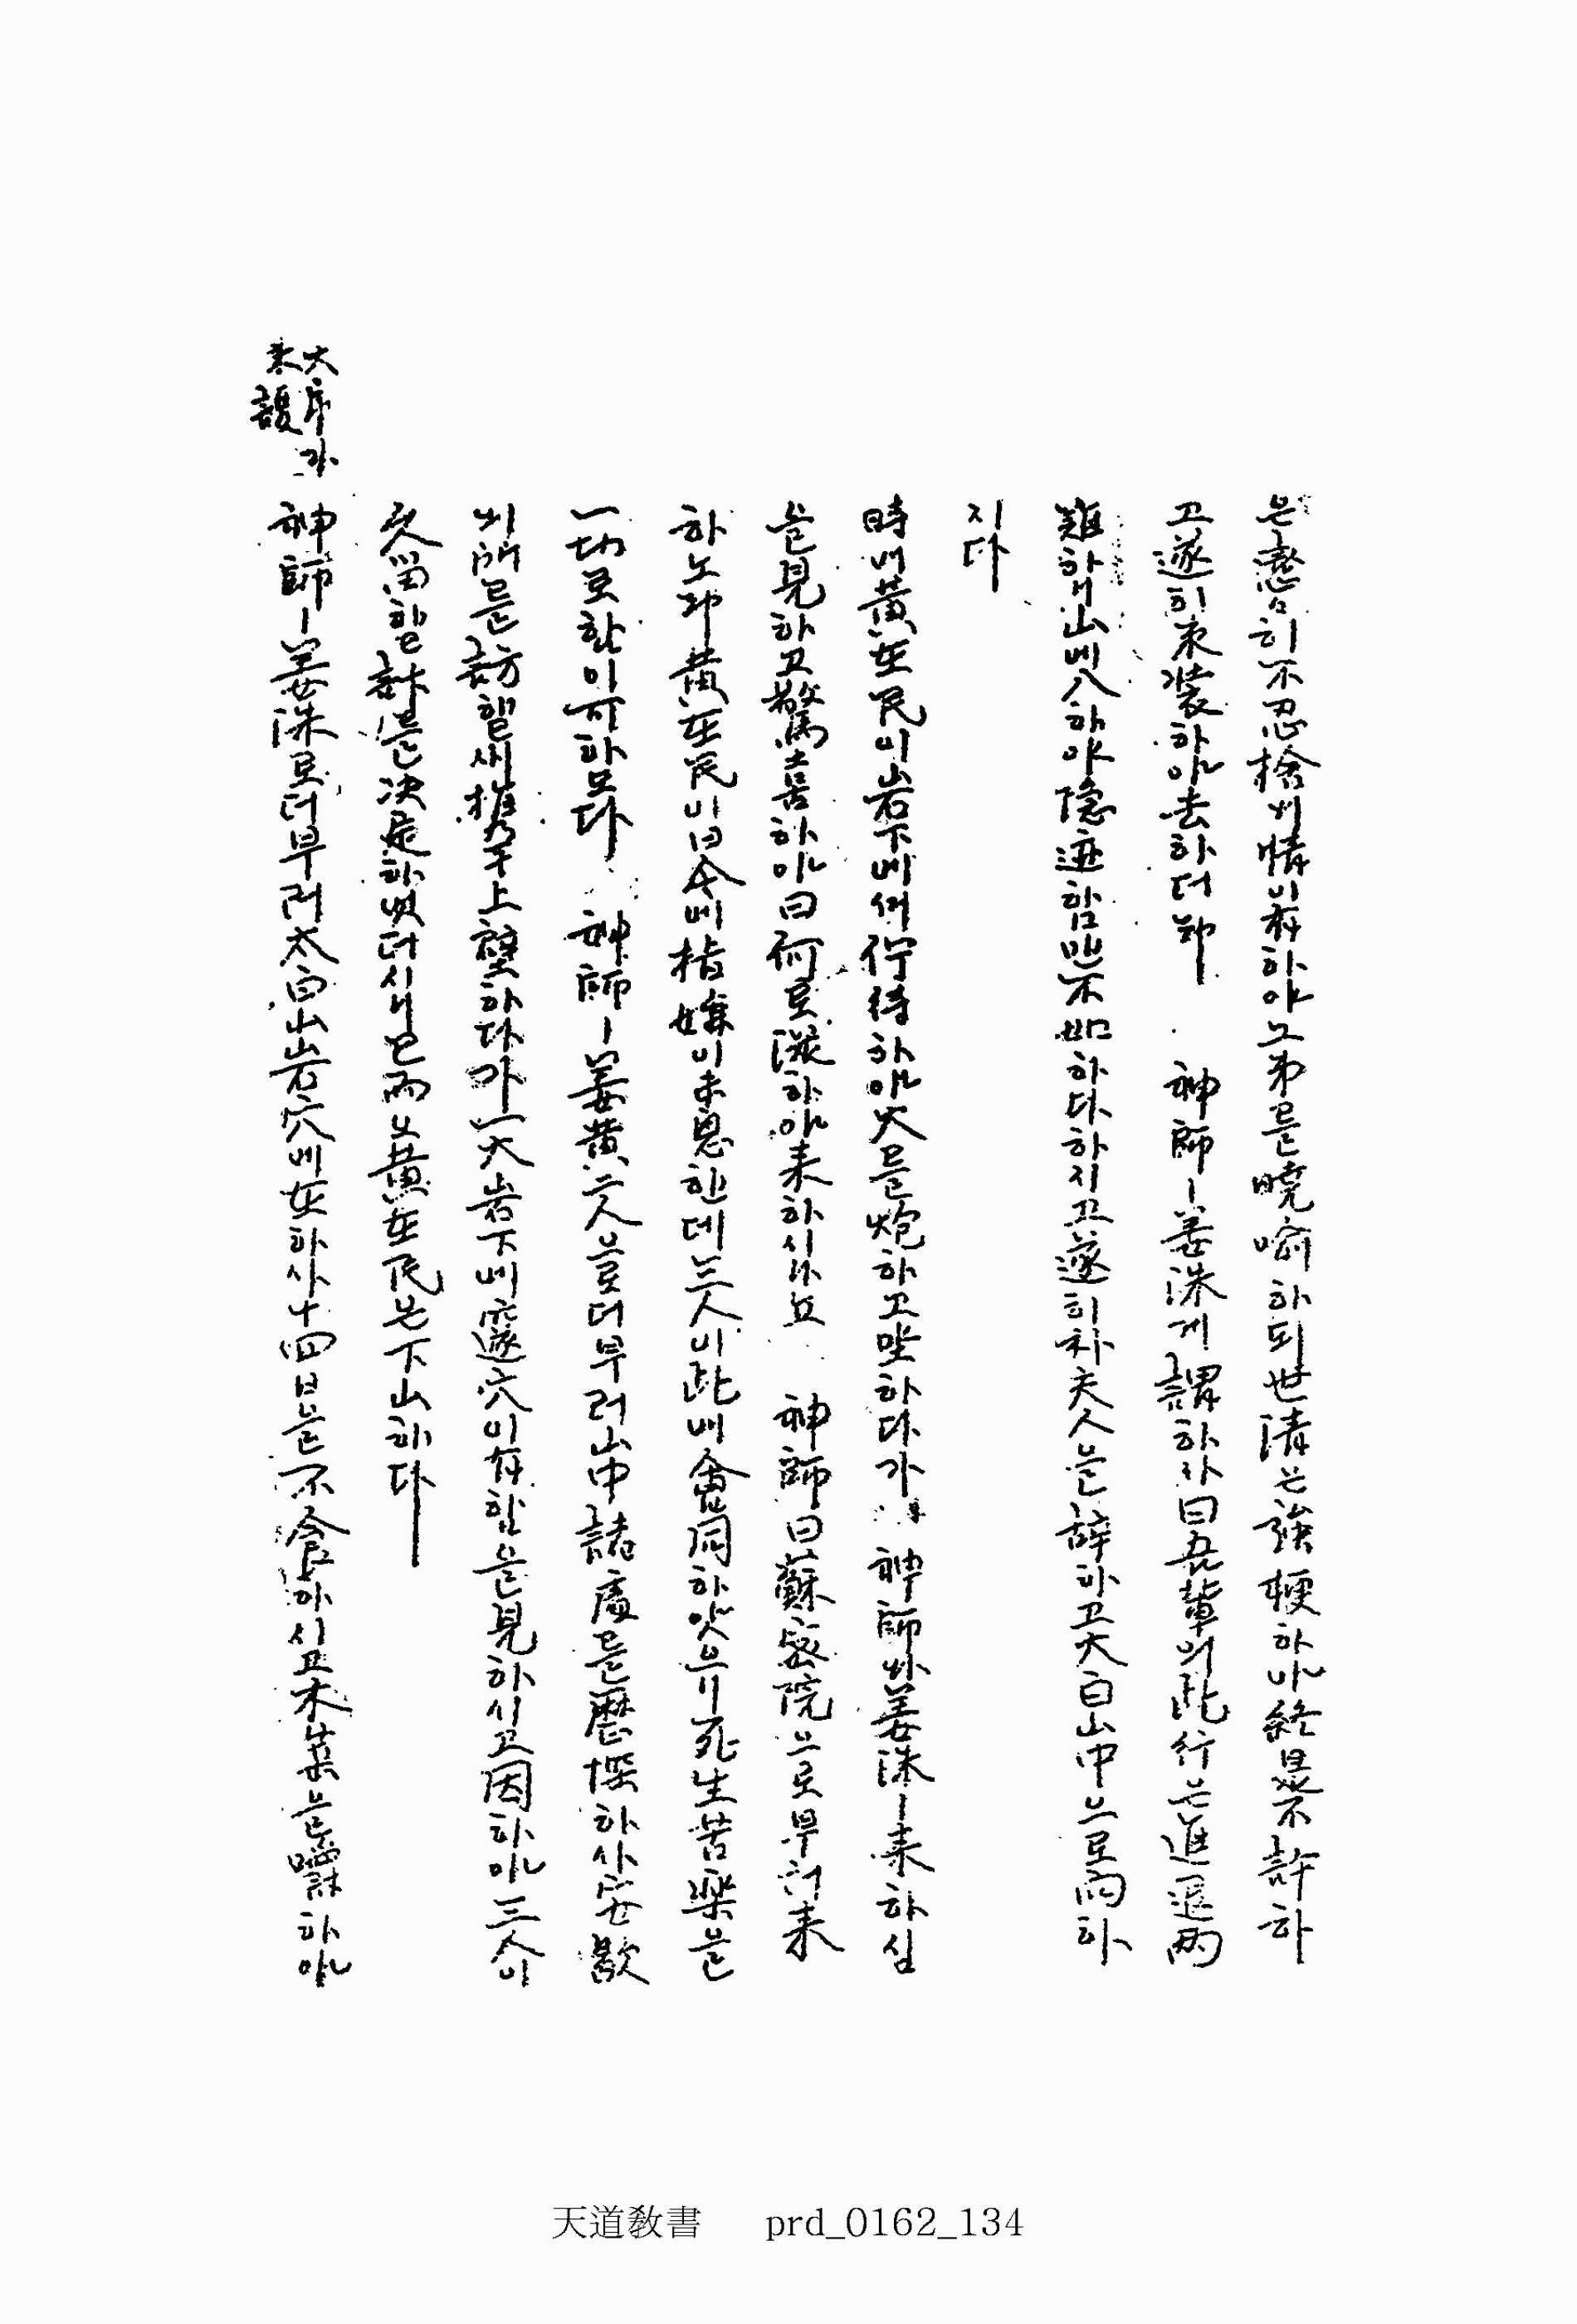 은慇懃히不忍捨의情이有하야그弟를曉喩하되世淸은強梗하야終是不許하
고遂히束裝하야去하더라 神師ㅣ姜洙게謂하사曰吾輩의此行은進退兩
難하니山에入하야隱遯함만不如하다하시고遂히朴夫人을辭하고大白山中으로向하
지다
時에黃在民이岩下에셔佇待하야火를炮하고坐하다가 神師와姜洙ㅣ來하심
을見하고驚喜하야曰何로從하야來하시나뇨 神師曰蘇密院으로부터來
하노라黃在民이曰今에指嗾이未息한데三人이此에會同하얏으니死生苦樂을
一切로함이可하도다 神師ㅣ姜黃二人으로더부러山中諸處를歷探하사安歇
의所를訪할새携手上壁하다가一大岩下에邃穴이有함을見하시고因하야三人이
久留할計를決定하얏더시니已而오黃在民은下山하다
神師ㅣ姜洙로더부러太白山岩穴에在하사十四日을不食하시고木葉을嚼하야
大虎가
來護
天道敎書 prd_0162_134